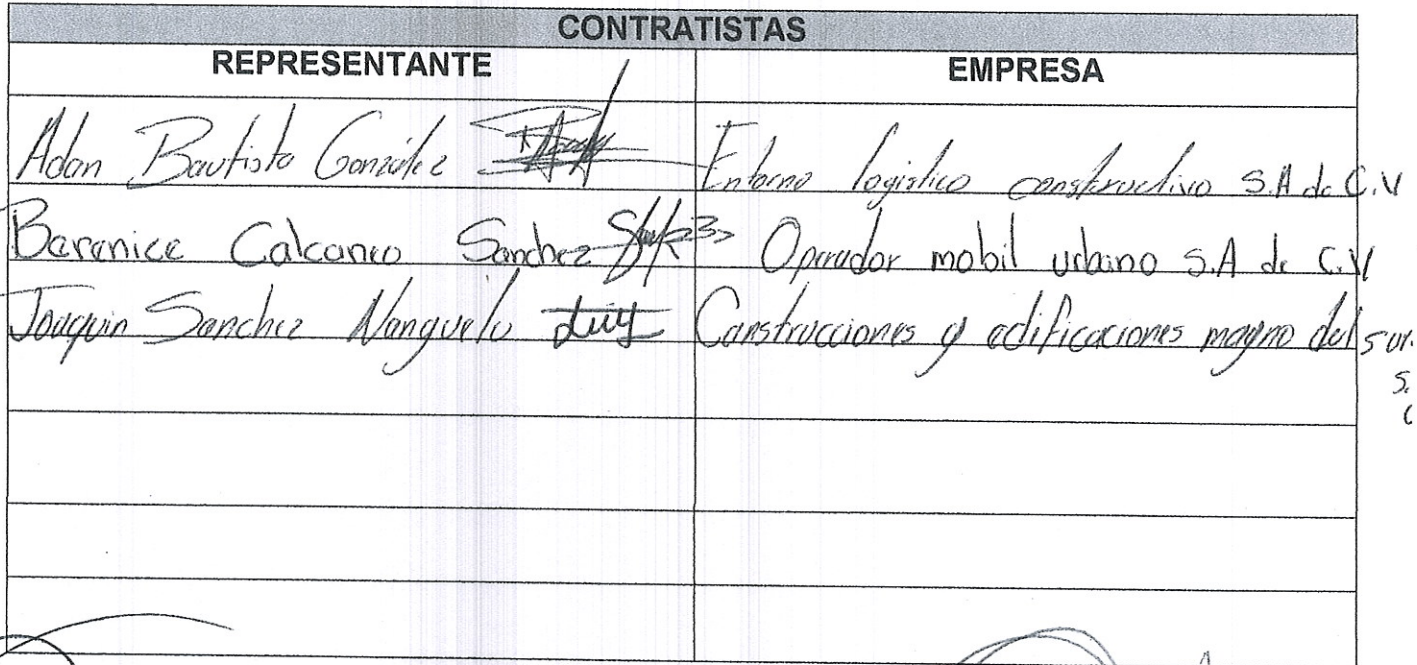 CONTRATISTAS
REPRESENTANTE EMPRESA
Adan Bautista González Entorno logistico constructivo S.A de C.V
Berenice Calcaneo Sanchez Operador mobil urbano S.A de C.V
Joaquin Sanchez Nangуelu Construcciones y edificaciones magno del sur
S.
C